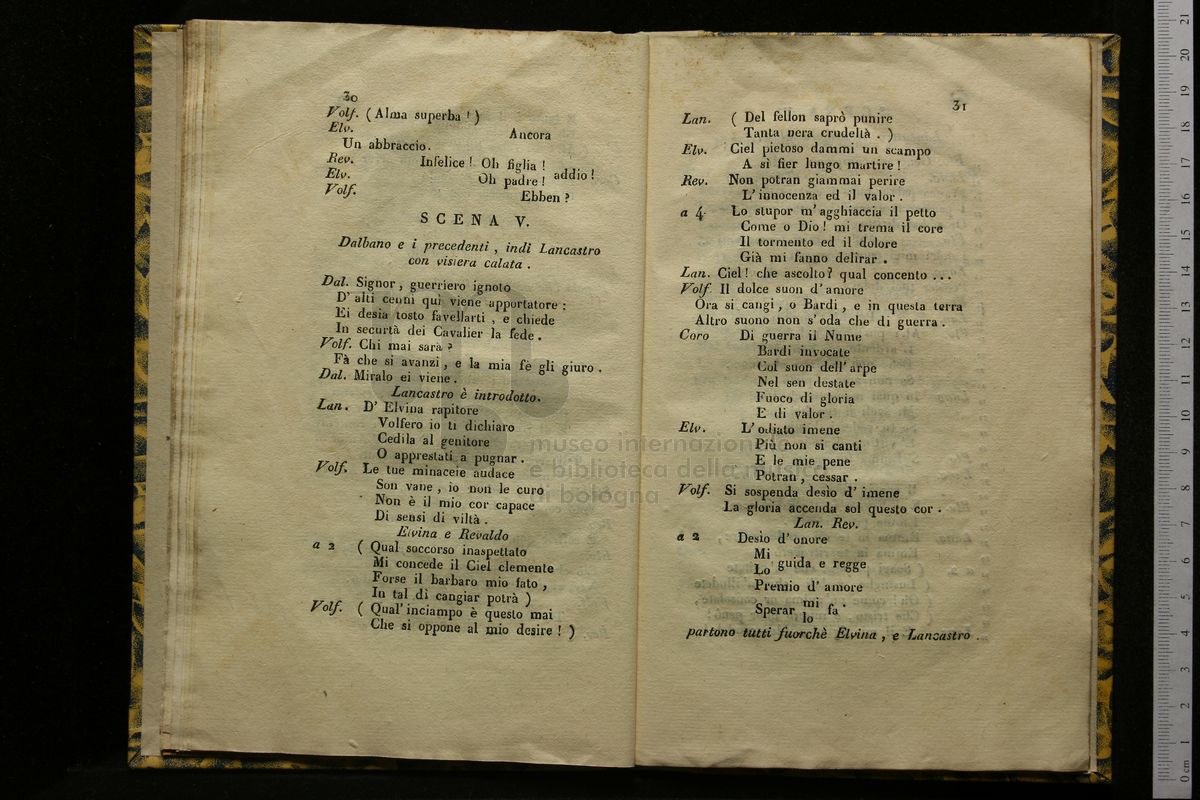 30
Volf. ( Alma superba ! )
Elv. Ancora
Un abbraccio.
Rev. Infelice ! Oh figlia !
Elv. Oh padre ! addio !
Volf. Ebben ?
SCENA V.
Dalbano e i precedenti , indi Lancastro
con visiera calata .
Dal. Signor , guerriero ignoto
D' alti cenni qui viene apportatore :
Ei desia tosto favellarti , e chiede
In securtà dei Cavalier la fede .
Volf. Chi mai sarà ?
Fà che si avanzi , e la mia fè gli giuro .
Dal. Miralo ei viene .
Lancastro è introdotto.
Lan. D' Elvina rapitore
Volfero io ti dichiaro
Cedila al genitore
O apprestati a pugnar .
Volf. Le tue minaccie audace
Son vane , io non le curo
Non è il mio cor capace
Di sensi di viltà .
Elvina e Revaldo
a 2 ( Qual soccorso inaspettato
Mi concede il Ciel clemente
Forse il barbaro mio fato ,
In tal dì cangiar potrà )
Volf. ( Qual' inciampo è questo mai
Che si oppone al mio desire ! )
31
Lan. ( Del fellon saprò punire
Tanta nera crudeltà . )
Elv. Ciel pietoso dammi un scampo
A sì fier lungo martire !
Rev. Non potran giammai perire
L' innocenza ed il valor .
a 4 Lo stupor m' agghiaccia il petto
Come o Dio ! mi trema il core
Il tormento ed il dolore
Già mi fanno delirar .
Lan. Ciel ! che ascolto ? qual concento ...
Volf. Il dolce suon d' amore
Ora si cangi , o Bardi , e in questa terra
Altro suono non s' oda che di guerra .
Coro Di guerra il Nume
Bardi invocate
Col suon dell' arpe
Nel sen destate
Fuoco di gloria
E di valor .
Elv. L' odiato imene
Più non si canti
E le mie pene
Potran , cessar .
Volf. Si sospenda desìo d' imene
La gloria accenda sol questo cor .
Lan. Rev.
a 2 Desìo d' onore
Mi
Lo guida e regge
Premio d' amore
Sperar mi fa .
lo
partono tutti fuorchè Elvina , e Lancastro .
museo internazion
e biblioteca della musica
di bologna
0 cm 1 2 3 4 5 6 7 8 9 10 11 12 13 14 15 16 17 18 19 20 21